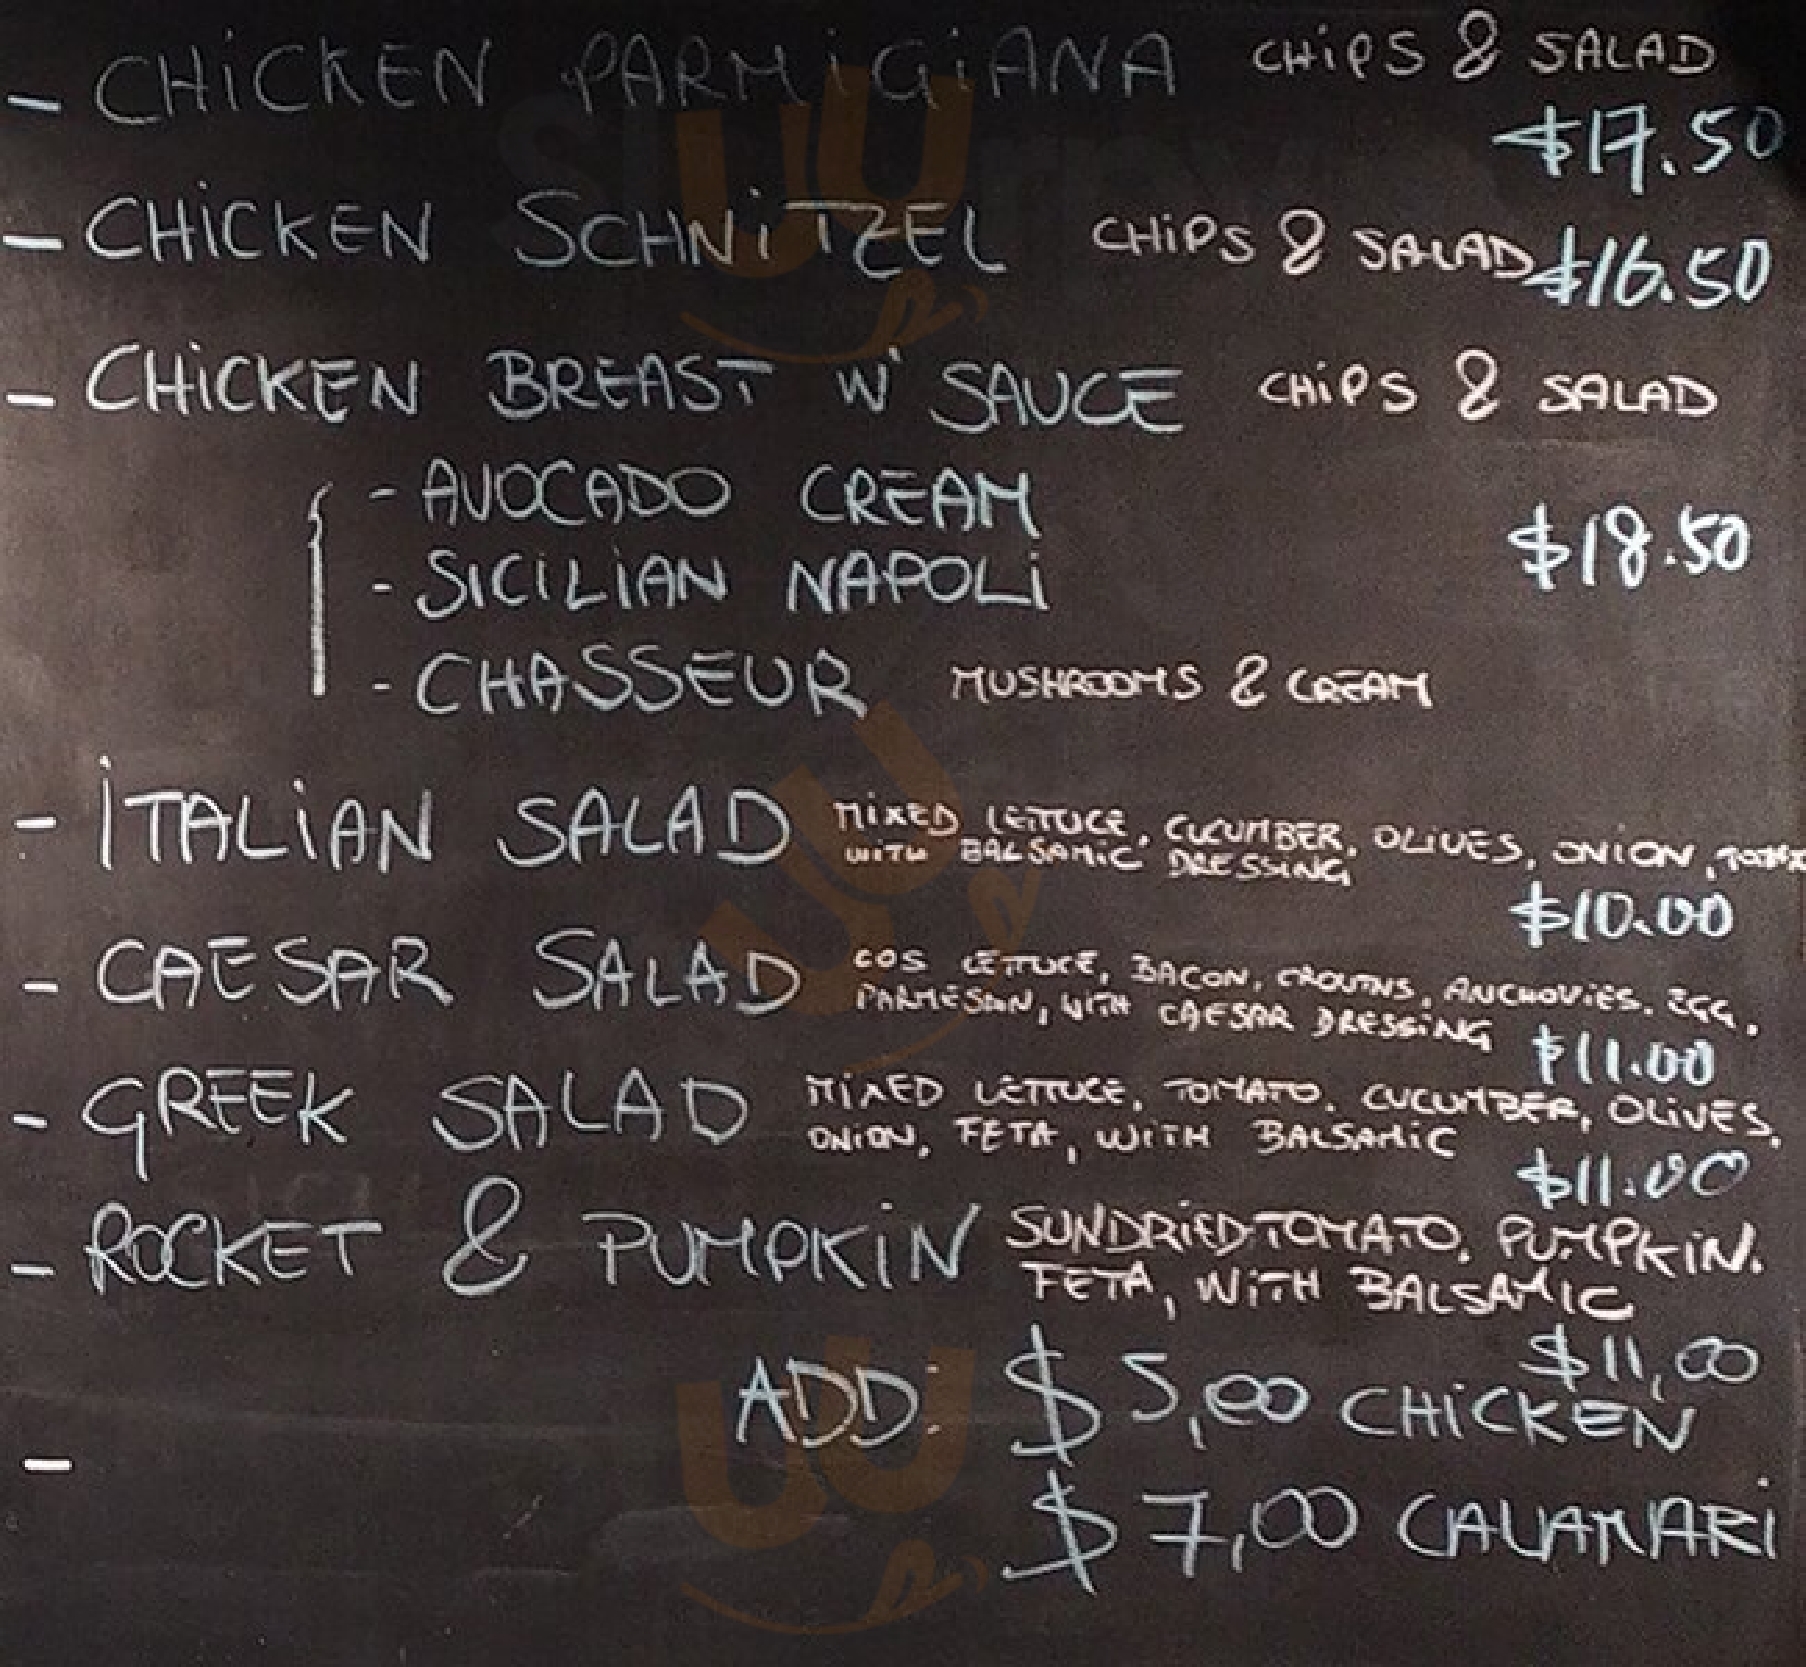 - CHiCKEN PARMiGiANA CHiPS & SALAD
$17.50
- CHiCKEN SCHNiTZEL CHiPS & SALAD $16.50
- CHiCKEN BREAST W' SAUCE CHiPS & SALAD
- AVOCADO CREAM
$18.50
- SICiLiAN NAPOLi
- CHASSEUR MUSHROOMS & CREAM
- iTALiAN SALAD MiXED LETTUCE, CUCUMBER, OLiVES, ONiON,
WITH BALSAMiC DRESSiNG
$10.00
- CAESAR SALAD COS LETTUCE, BACON, CROUTNS, ANCHOViES, EGG,
PARMESAN, WiTH CAESAR DRESSiNG
$11.00
- GREEK SALAD MiXED LETTUCE, TOMATO, CUCUMBER, OLiVES,
ONiON, FETA, WiTH BALSAMiC
$11.00
- ROCKET & PUMPKiN SUNDRiED TOMATO, PUMPKiN,
FETA, WiTH BALSAMIC
$11,00
ADD: $5,00 CHiCKEN
-
$7,00 CALAMARi